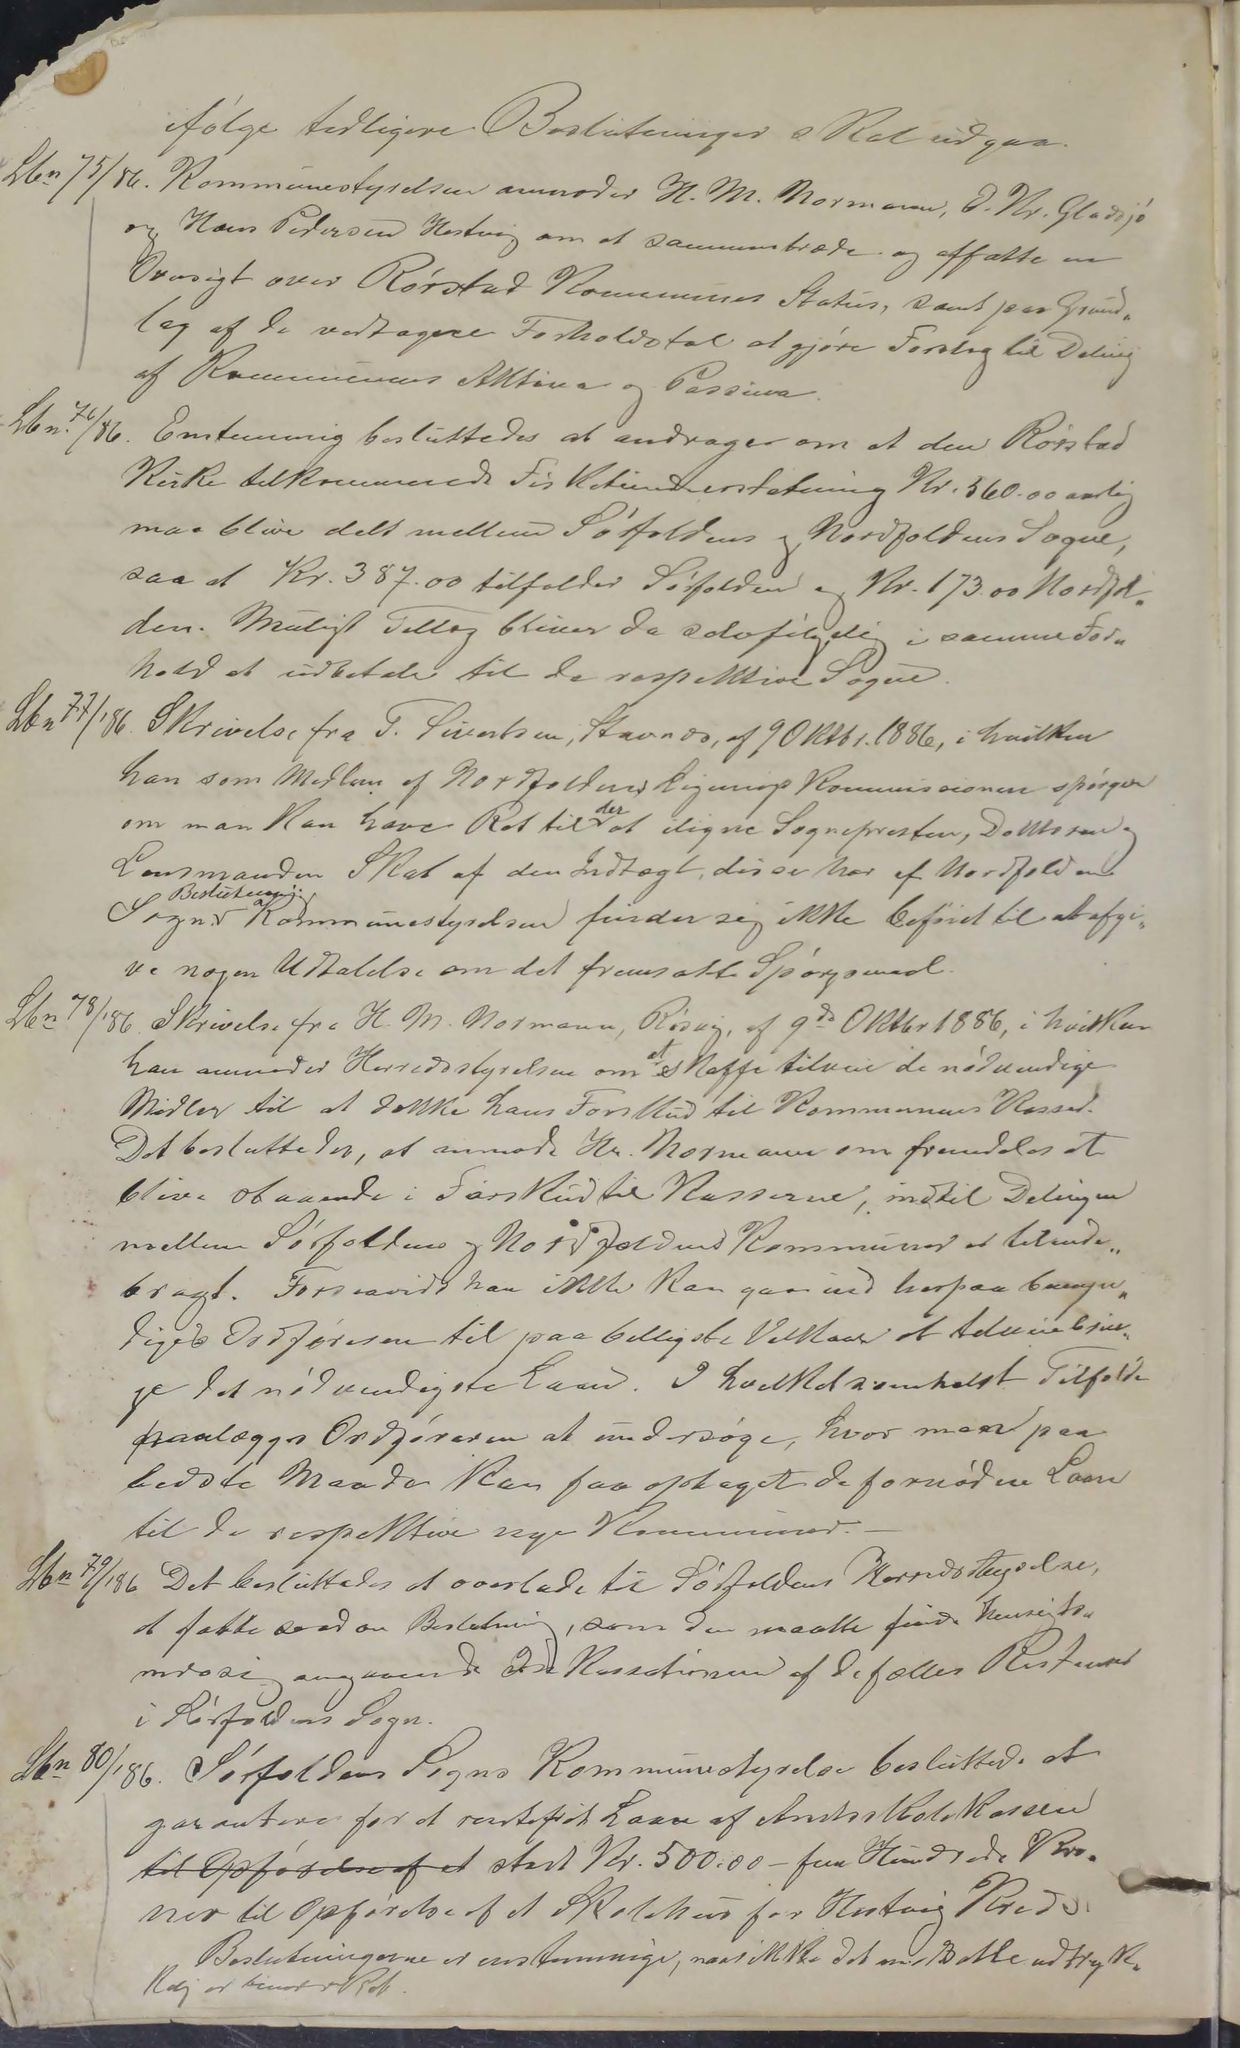 ifølge tidligere Beslutninger skal udgaa.
Lbn 75/86. Kommunestyrelsen anmoder H. M. Normann, E. Kr. Gladsjø
og Hans Pedersen Hestvig om at sammentræde og affatte en
Oversigt over Rørstad Kommunes Status, samt paa Grund„
lag af de vedtagne Forholdstal at gjøre Forslag til Deling
af Kommunens Aktiva og Passiva.
Lbn. 76/86. Enstemmig besluttedes at andrage om at den Rørstad
Kirke tilkommende Fisketiendeerstatning Kr. 560.00 aarlig
maa blive delt mellem Sørfoldens og Nordfoldens Sogne,
saa at Kr. 387.00 tilfalder Sørfolden og Kr. 173.00 Nordfol„
den. Muligt Tillæg bliver da selvfølgelig i samme For„
hold at udbetale til de respektive Sogne.
Lbn 77/86. Skrivelse fra T. Sivertsen, Stavnes, af 9 Oktbr. 1886, i hvilken
han som Medlem af Nordfoldens Ligningskommissionen spørger
om man kan have Ret til der at iligne Sognepresten, Doktoren og
Lensmanden Skat af den Indtægt, disse har af Nordfoldens
Sogn. Beslutning: Kommunestyrelsen finder sig ikke beføiet til at afgi„
ve nogen Udtalelse om det fremsatte Spørgsmaal.
Lbn 78/86. Skrivelse fra H. M. Normann, Røsvig, af 9de Oktbr 1886, i hvilken
han anmoder Herredsstyrelsen om at skaffe tilveie de nødvendige
Midler til at dække hans Forskud til Kommunens Kasse.
Det besluttedes, at anmode Hr. Normann om fremdeles at
blive staaende i Forskud til Kasserne, indtil Delingen
mellem Sørfoldens og Nordfoldens Kommuner er tilende„
bragt. Forsaavidt han ikke kan gaa ind herpaa bemyn„
diges Ordføreren til paa billigste Vilkaar at tilveiebrin„
ge det nødvendigste Laan. I hvilketsomhelst Tilfælde
paalægges Ordføreren at undersøge, hvor man paa
bedste Maade kan faa optaget de fornødne Laan
til de respektive nye Kommuner. —
Lbn 79/86 Det besluttedes at overlade til Sørfoldens Herredsstyrelse,
at fatte saadan Beslutning, som den maatte finde hensigts„
mæssig angaaende Kassationen af de fælles Restancer
i Sørfoldens Sogn.
Lbn 80/86. Sørfoldens Sogns Kommunestyrelse besluttede at
garantere for et rentefrit Laan af Amtsskolekassen
til Opførelse af et stort Kr. 500.00 — fem Hundrede Kro„
ner til Opførelse af et Skolehus for Hestvig Kreds.
Beslutningerne er enstemmige, naar ikke det modsatte udtryk„
kelig er bemærket.